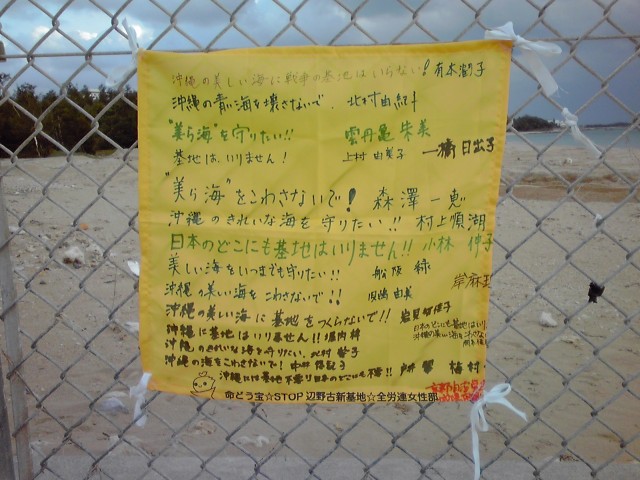 沖縄の美しい海に戦争の基地はいらない! 有本潤子
沖縄の青い海を壊さないで. 北村由紀子
"美ら海"を守りたい!! 雲丹亀 朱美
基地は、いりません! 上村由美子 一橋日出子
"美ら海"をこわさないで! 森澤一恵
沖縄のきれいな海を守りたい!! 村上順湖
日本のどこにも基地はいりません!! 小林 伴子
美しい海をいつまでも守りたい!! 船阪 緑
沖縄の美しい海をこわさないで!! 由美 岸麻
沖縄の美しい海に基地をつくらないで!! 岩見
日本のどこにも基地はいり
沖縄の美しい海をこわさな
沖縄に基地はいりません!! 堀内
沖縄のきれいな海を守りたい. 北村
沖縄の海をこわさないで! 中田 植村
沖縄には基地不要!! 日本のどこにも不要!!
命どう宝☆STOP 辺野古新基地☆全労連女性部